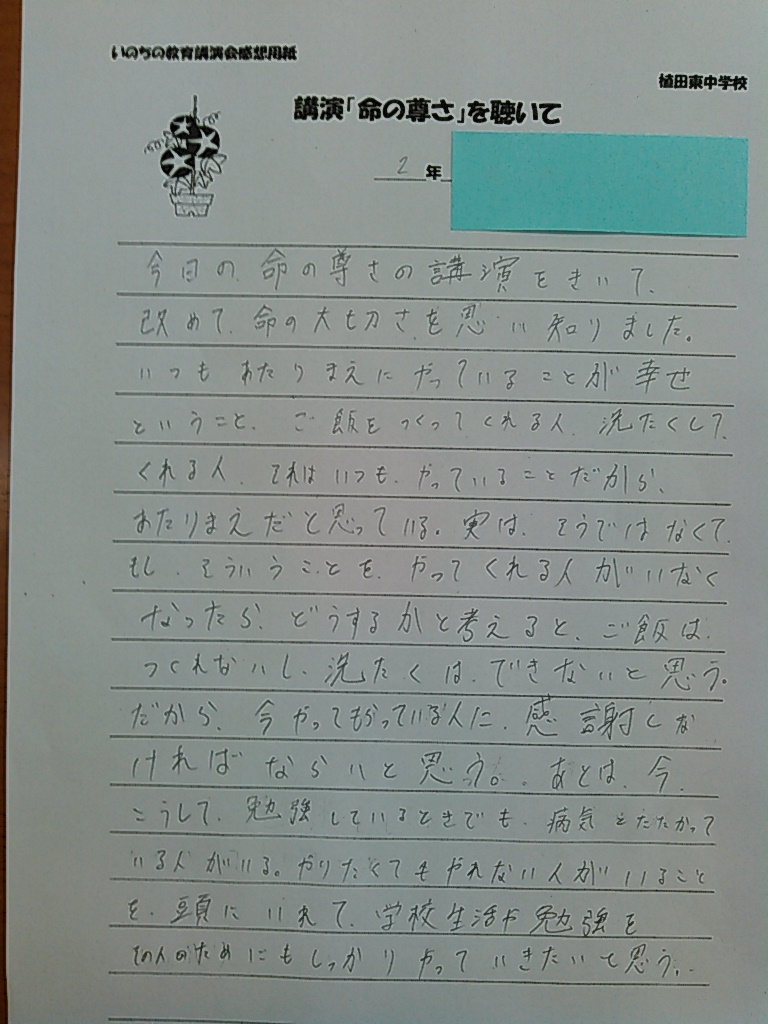 いのちの教育講演会感想用紙
植田東中学校
講演「命の尊さ」を聴いて
2年
今日の、命の尊さの講演をきいて、
改めて、命の大切さを思い知りました。
いつもあたりまえにやっていることが幸せ
ということ、ご飯をつくってくれる人、洗たくして、
くれる人、それはいつも、やっていることだから、
あたりまえだと思っている。実は、そうではなくて、
もし、そういうことを、やってくれる人がいなく
なったら、どうするかと考えると、ご飯は、
つくれないし、洗たくは、できないと思う。
だから、今やってもらっている人に、感謝しな
ければならいと思う。あとは、今、
こうして、勉強しているときでも、病気とたたかって
いる人がいる。やりたくてもやれない人がいること
を、頭にいれて、学校生活や勉強を
その人のためにもしっかりやっていきたいと思う。